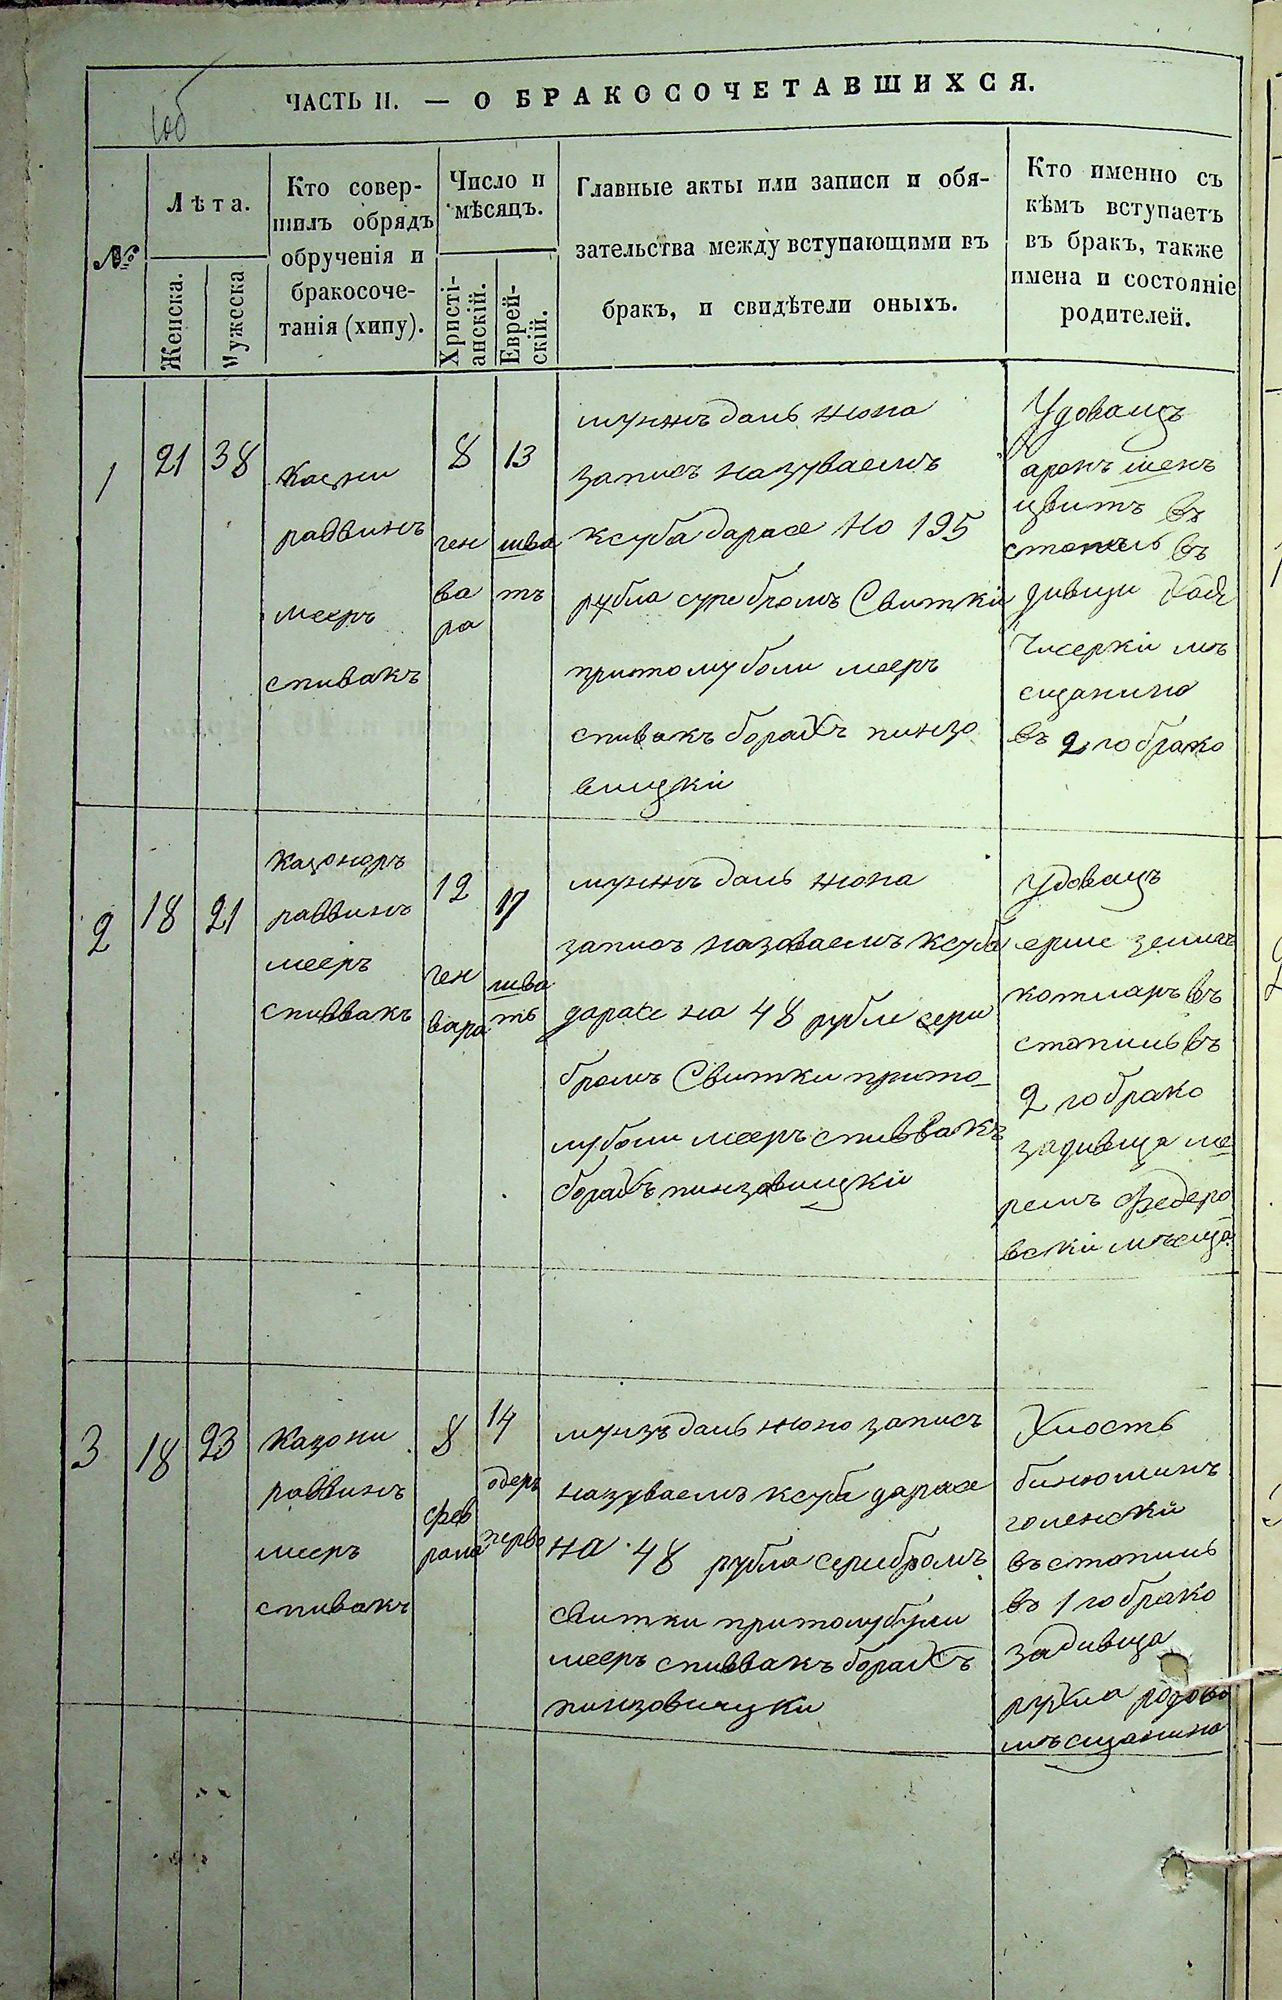 ЧАСТЬ II. — О БРАКОСОЧЕТАВШИХСЯ.
№
Лѣта.
Женска.
Мужеска
Кто совер-
шилъ обрядъ
обрученія и
бракосоче-
танія (хипу).
Число и
мѣсяцъ.
Христі-
анскій.
Еврей-
скій.
Главные акты или записи и обя-
зательства между вступающими въ
бракъ, и свидѣтели оныхъ.
Кто именно съ
кѣмъ вступаетъ
въ бракъ, также
имена и состояніе
родителей.
1
21
38
раввинъ
мееръ
спивакъ
8
ген
ва
ра
13
шва
тъ
мужнъ даль жона
записъ назуваемъ
ксуба дарасе но 195
рубла суребромъ Свитки
притомуболи мееръ
спивакъ борахъ пинзо
вицкій
Удовацъ
аронъ шенъ
цвитъ въ
стопиль въ
дивици Хая
Чисеркій мѣ
сщанино
въ 2 го брако
2
18
21
Казонаръ
раввинъ
мееръ
спиввакъ
12
ген
вара
17
шва
тъ
мужнъ даль жона
записъ назоваемъ ксуба
дарасе на 48 рубле сери
бромъ Свитки прито-
муболи мееръ спиввакъ
борахъ пинзовицкій
Удовацъ
котляръ въ
стопиль въ
2 го брако
задивица ме
реимъ Федеро
вскій мѣсща
3
18
23
Казони
раввинъ
мееръ
спивакъ
8
фев
рала
14
одеръ
перво
мунзъ даль жоно записъ
назуваемъ ксуба дарасе
на 48 рубла серибромъ
свитки притомубули
мееръ спиввакъ борахъ
пинзовицки
Хлость
биюминъ
голенскій
въ стопиль
въ 1 го брако
задивица
рухла родово
мѣсщанино